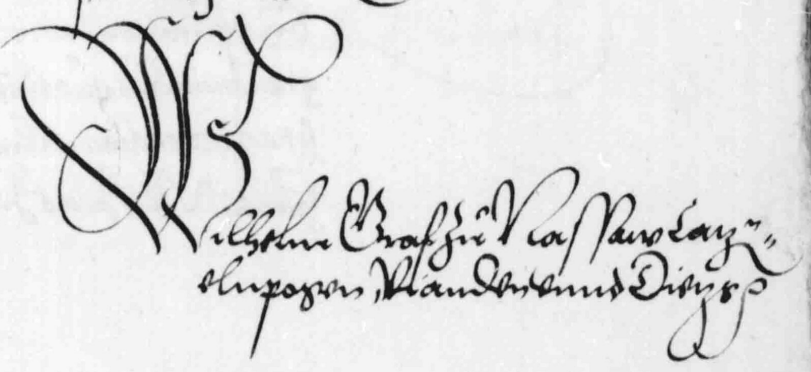 Wilhelm Graf zu Nassaw Catz-
elnpogen Vianden unnd Dietz